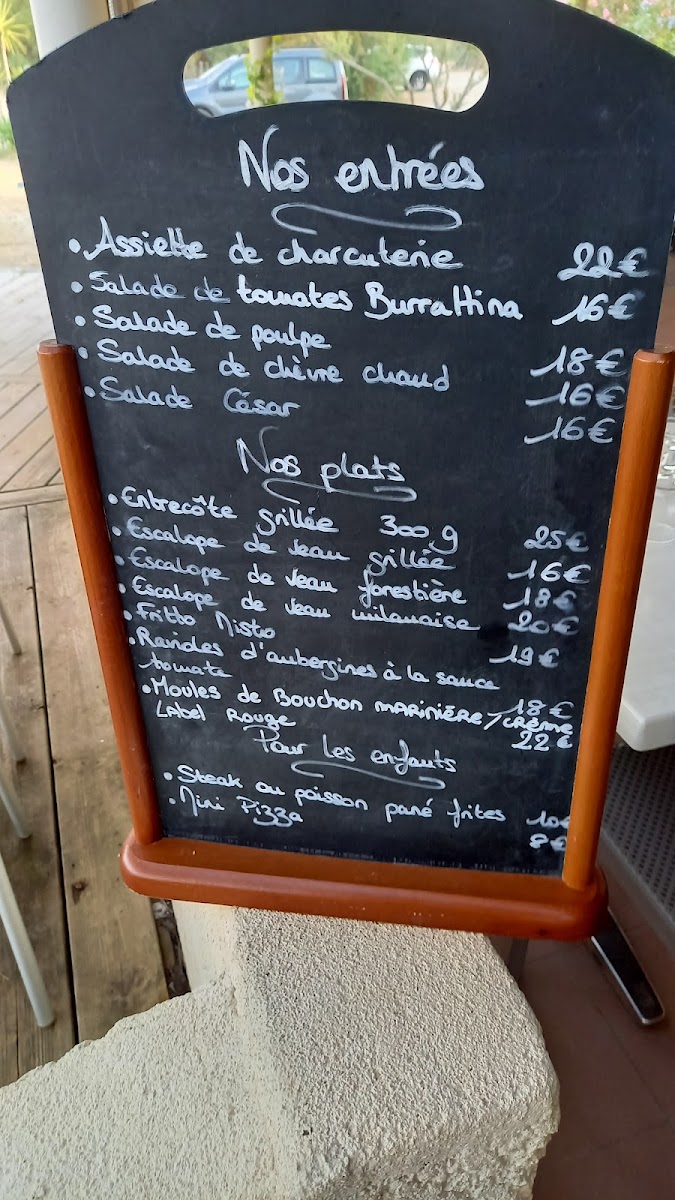 Nos entrées
• Assiette de charcuterie 22€
• Salade de tomates Burrattina 16€
• Salade de poulpe 18€
• Salade de chèvre chaud 16€
• Salade César 16€
Nos plats
• Entrecôte grillée 300g 25€
• Escalope de veau grillée 16€
• Escalope de veau forestière 18€
• Escalope de veau milanaise 20€
• Fritto Misto 19€
• Ravioles d'aubergines à la sauce
tomate 18€
• Moules de Bouchon marinière/crème
Label Rouge 22€
Pour les enfants
• Steak ou poisson pané frites 10€
• Mini Pizza 8€